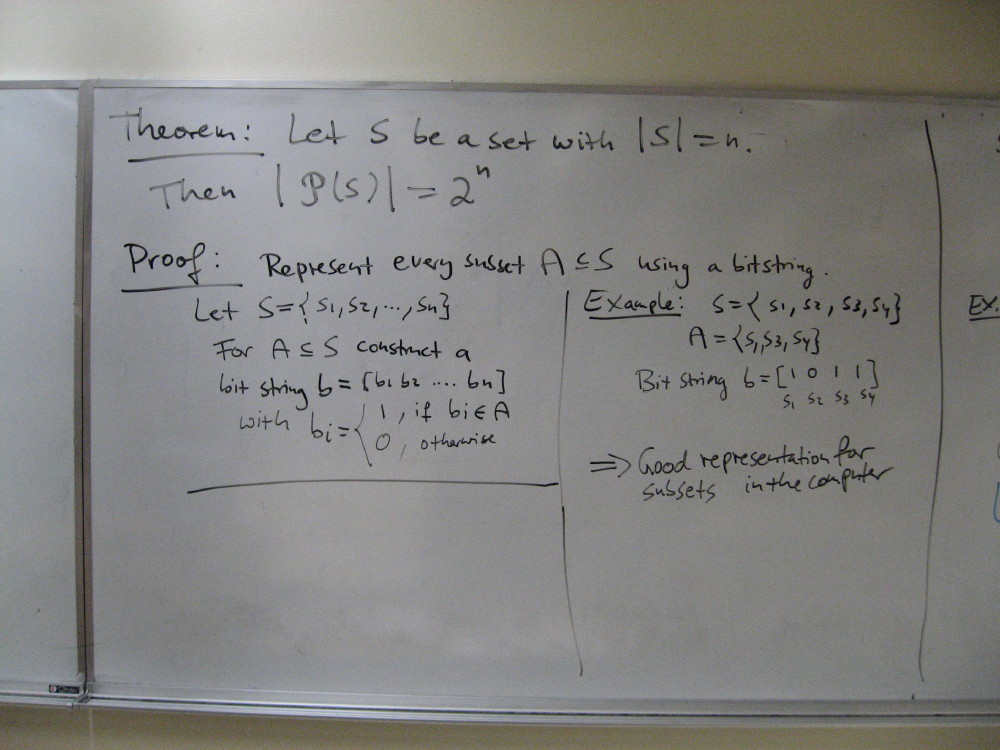 Theorem: Let S be a set with |S| = n.
Then |P(S)| = 2^n
Proof: Represent every subset A ⊆ S using a bitstring.
Let S = {s1, s2, ..., sn}
For A ⊆ S construct a
bit string b = [b1 b2 .... bn]
with bi = { 1, if bi ∈ A
0, otherwise
Example: S = {s1, s2, s3, s4}
A = {s1, s3, s4}
Bit string b = [1 0 1 1]
s1 s2 s3 s4
⇒ Good representation for
subsets in the computer
Ex.